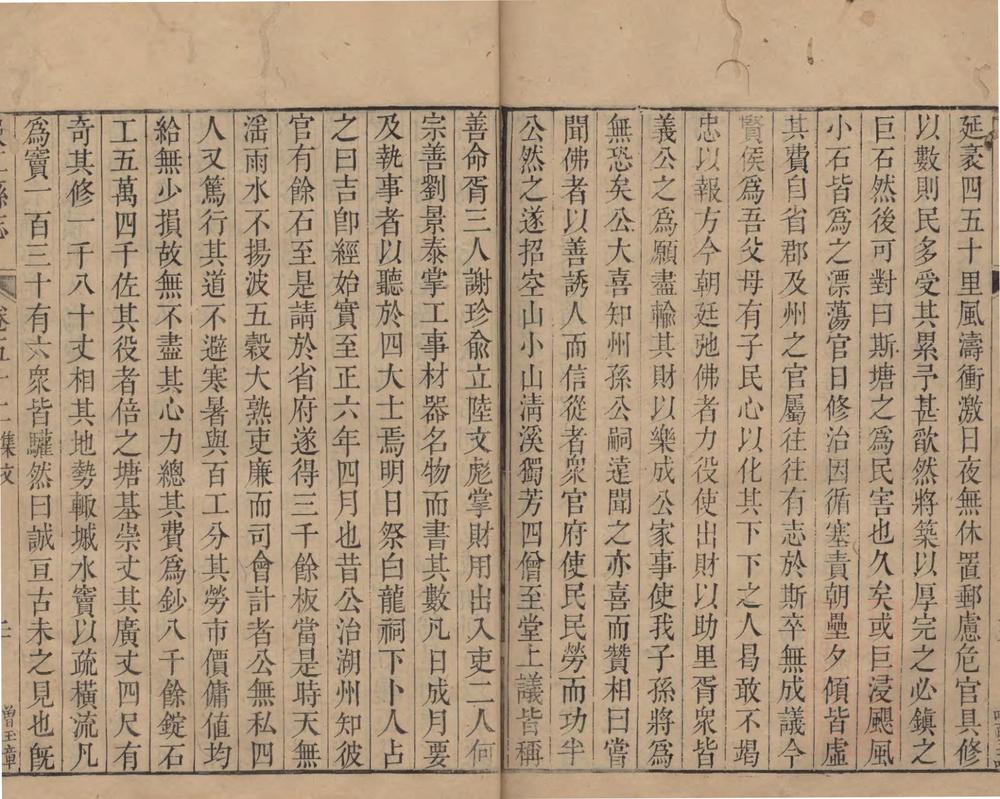 延袤四五十里風濤衝激日夜無休置郵慮危官具修
以數則民多受其累予甚歉然將築以厚完之必鎮之
巨石然後可對曰斯塘之爲民害也久矣或巨浸颶風
小石皆爲之漂蕩官日修治因循塞責朝壘夕傾皆虛
其費自省郡及州之官屬往往有志於斯卒無成議今
賢侯爲吾父母有子民心以化其下下之人曷敢不竭
忠以報方今朝廷弛佛者力役使出財以助里胥衆皆
義公之爲願盡輸其財以樂成公家事使我子孫將爲
無恐矣公大喜知州孫公嗣遠聞之亦喜而贊相曰嘗
聞佛者以善誘人而信從者衆官府使民民勞而功半
公然之遂招空山小山清溪獨芳四僧至堂上議皆稱
善命胥三人謝珍俞立陸文彪掌財用出入吏二人何
宗善劉景泰掌工事材器名物而書其數凡日成月要
及執事者以聽於四大士焉明日祭白龍祠下卜人占
之曰吉卽經始實至正六年四月也昔公治湖州知彼
官有餘石至是請於省府遂得三千餘板當是時天無
滛雨水不揚波五穀大熟吏廉而司會計者公無私四
人又篤行其道不避寒暑與百工分其勞市價傭值均
給無少損故無不盡其心力總其費爲鈔八千餘錠石
工五萬四千佐其役者倍之塘基崇丈其廣丈四尺有
奇其修一千八十丈相其地勢輙堿水竇以疏橫流凡
爲竇一百三十有六衆皆驩然曰誠亘古未之見也旣
縣志
卷五十一
集文
二
曾玉章